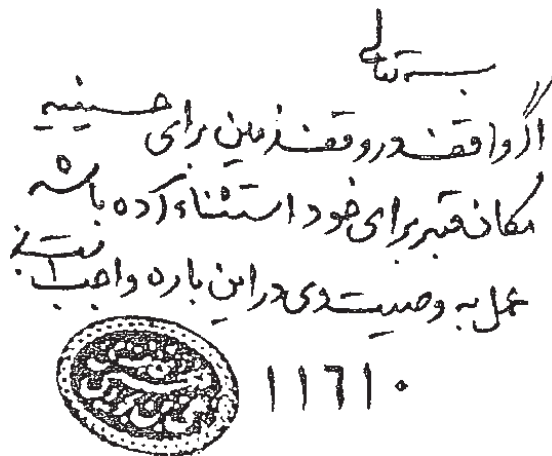 بسمه تعالی
اگر واقف در وقف زمین برای حسینیه
مکان قبر برای خود استثناء کرده باشد
عمل به وصیت وی در این باره واجب است
۱۱۶۱۰